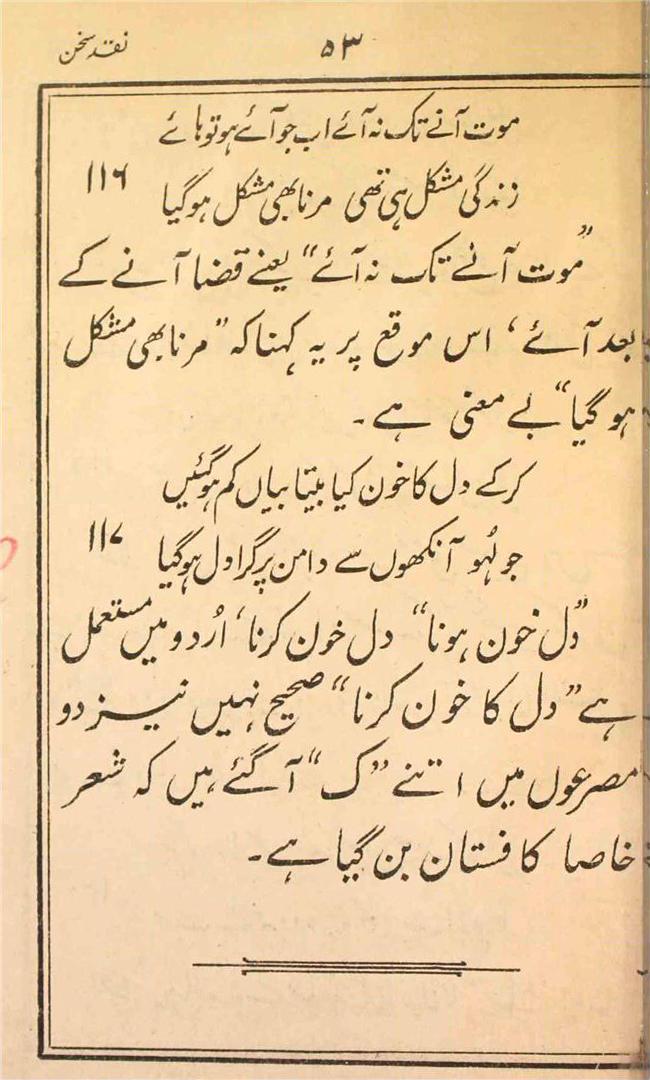 نقد سخن
۵۳
موت آنے تک نہ آئے اب جو آئے ہو تو ہائے
زندگی مشکل ہی تھی مرنا بھی مشکل ہو گیا ۱۱۶
”موت آنے تک نہ آئے“ یعنے قضا آنے کے
بعد آئے ، اس موقع پر یہ کہنا کہ ”مرنا بھی مشکل
ہو گیا“ بے معنی ہے۔
کرکے دل کا خون کیا بیتابیاں کم ہو گئیں
جو لہُو آنکھوں سے دامن پر گرا دل ہو گیا ۱۱۷
”دل خون ہونا“ دل خون کرنا، اُردو میں مستعمل
ہے ”دل کا خون کرنا“ صحیح نہیں نیز دو
مصرعوں میں اتنے ”ک“ آ گئے ہیں کہ شعر
خاصا کافستان بن گیا ہے۔